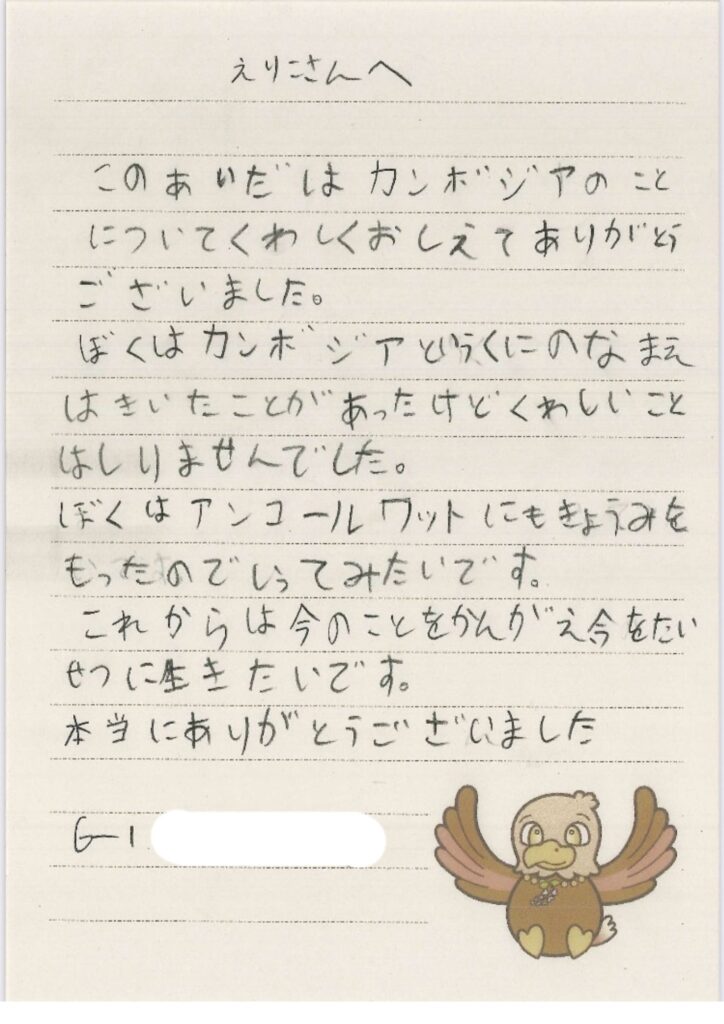 えりこさんへ
このあいだはカンボジアのこと
についてくわしくおしえてありがとう
ございました。
ぼくはカンボジアというくにのなまえ
はきいたことがあったけどくわしいこと
はしりませんでした。
ぼくはアンコールワットにもきょうみを
もったのでいってみたいです。
これからは今のことをかんがえ今をたい
せつに生きたいです。
本当にありがとうございました
G-1